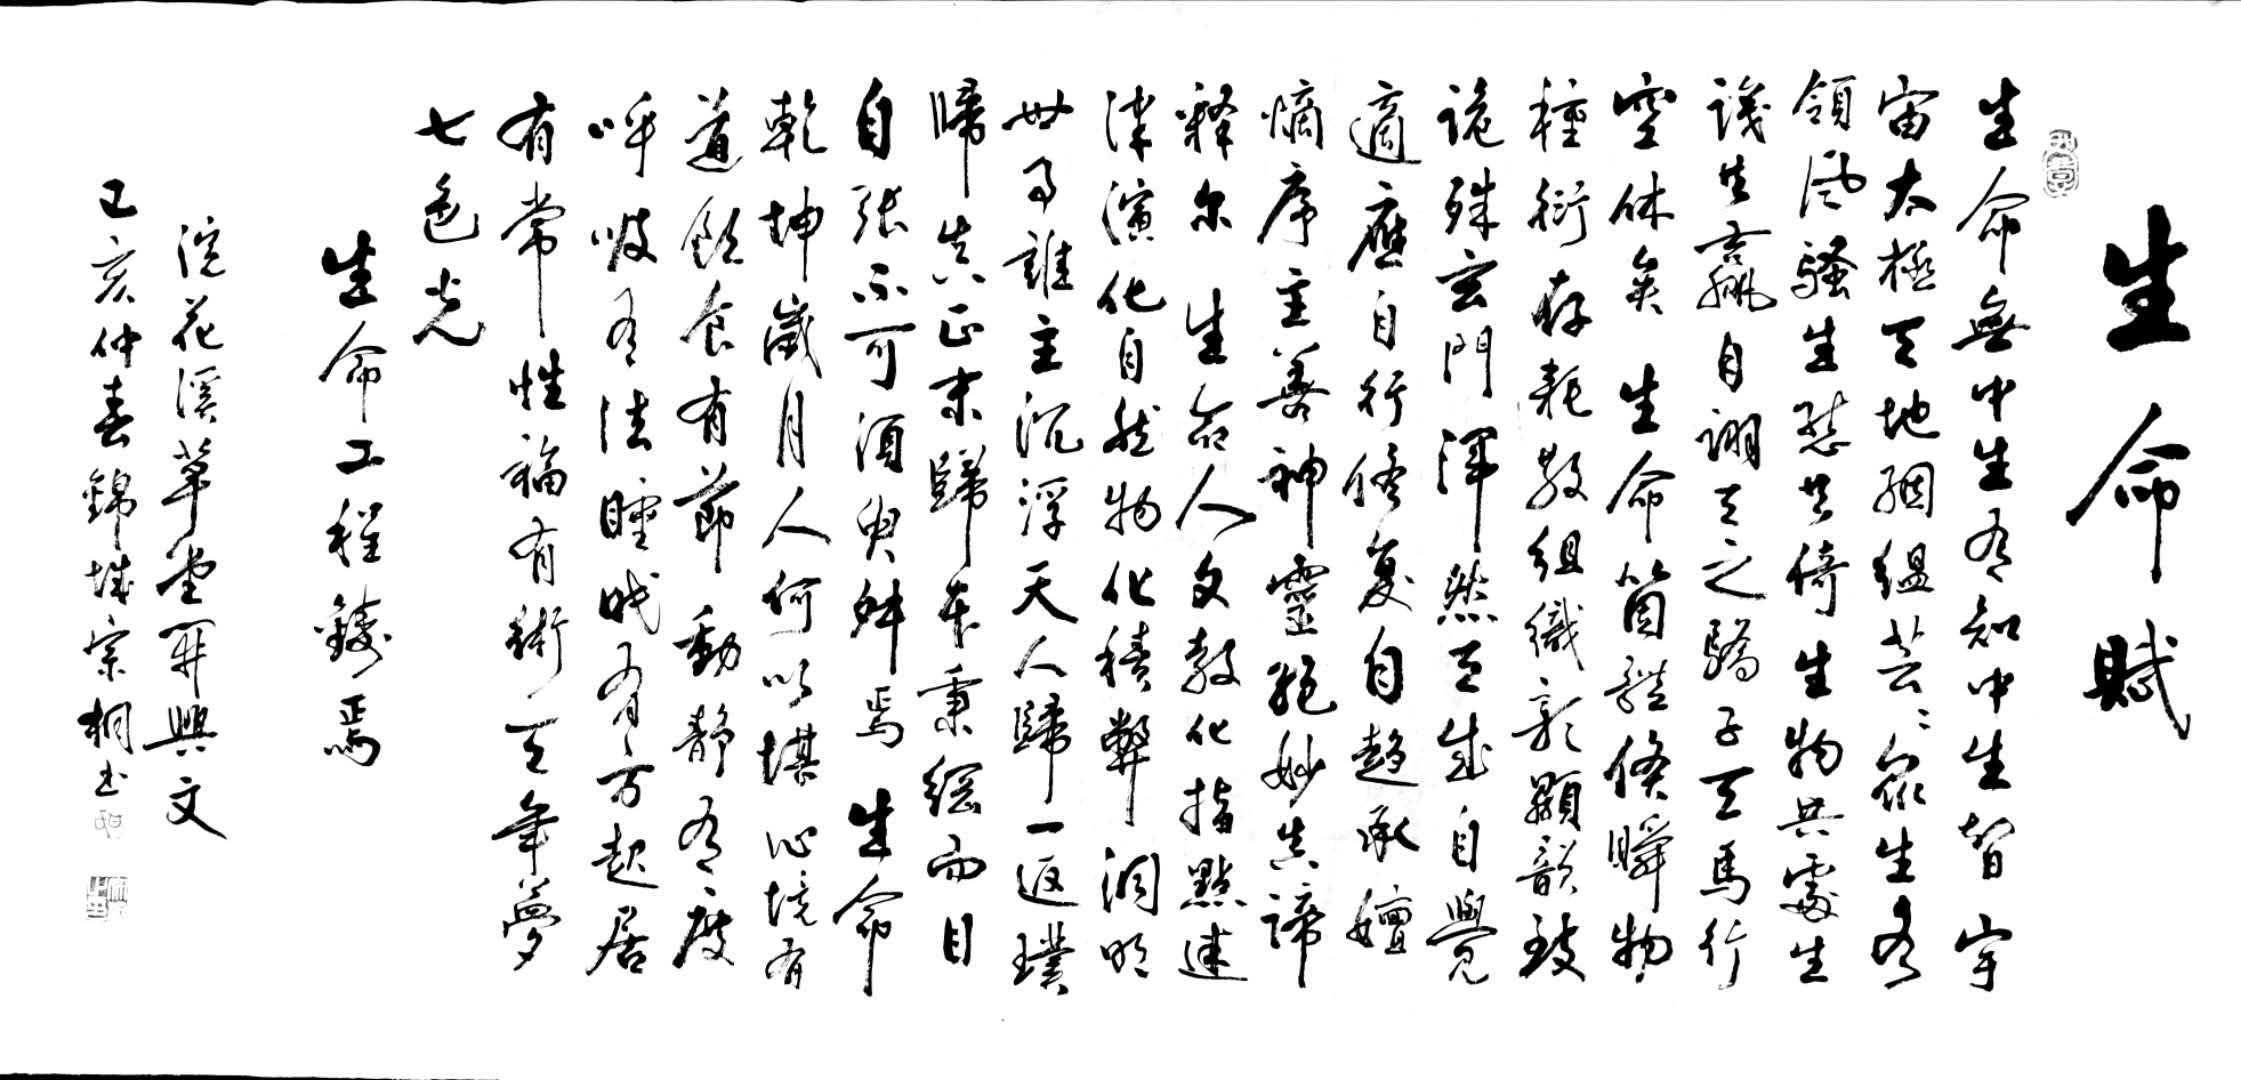 生命賦
生命無中生有知中生智宇
宙太極天地絪縕芸芸眾生各
領風騷生慧共倚生物共處生
識生言贏自詡天之驕子天馬行
空休矣生命箇體倏瞬物
種衍存耗散組織彰顯韻致
詭殊玄門渾然天成自覺
適應自行修復自趨承嬗
熵序主善神靈絕妙真諦
釋尔生命人文教化指點迷
津演化自然物化積弊洞明
世事誰主沉浮天人歸一返璞
歸真正末歸本秉綱而目
自張不可須臾舛焉生命
乾坤歲月人何以堪心境有
道飲食有節動靜有度
呼吸有法睡眠有方起居
有常性福有術天年夢
七色光
生命工程鑄焉
浣花溪草堂開興文
己亥仲春錦城宗桐书